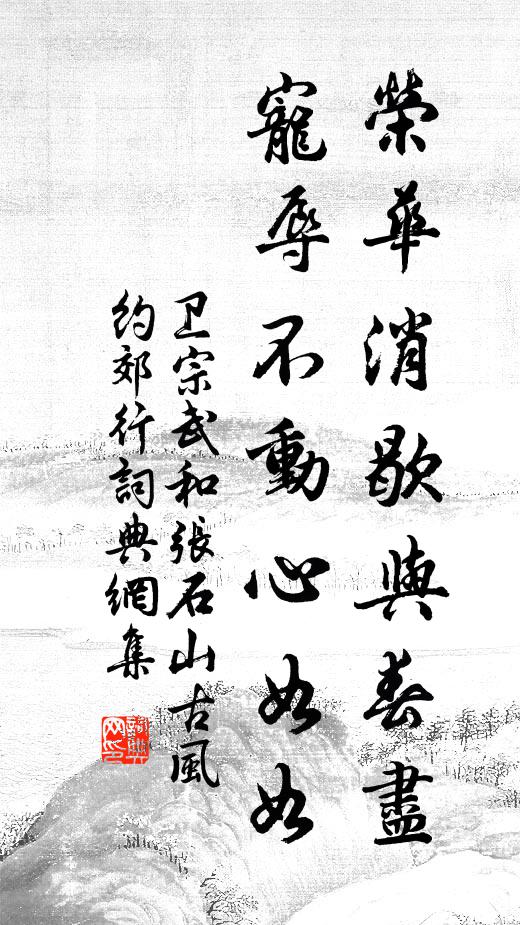 榮華消歇與春盡
寵辱不動心如如
卫宗武和張石山古風
約郊行詞典網集
詞典網印